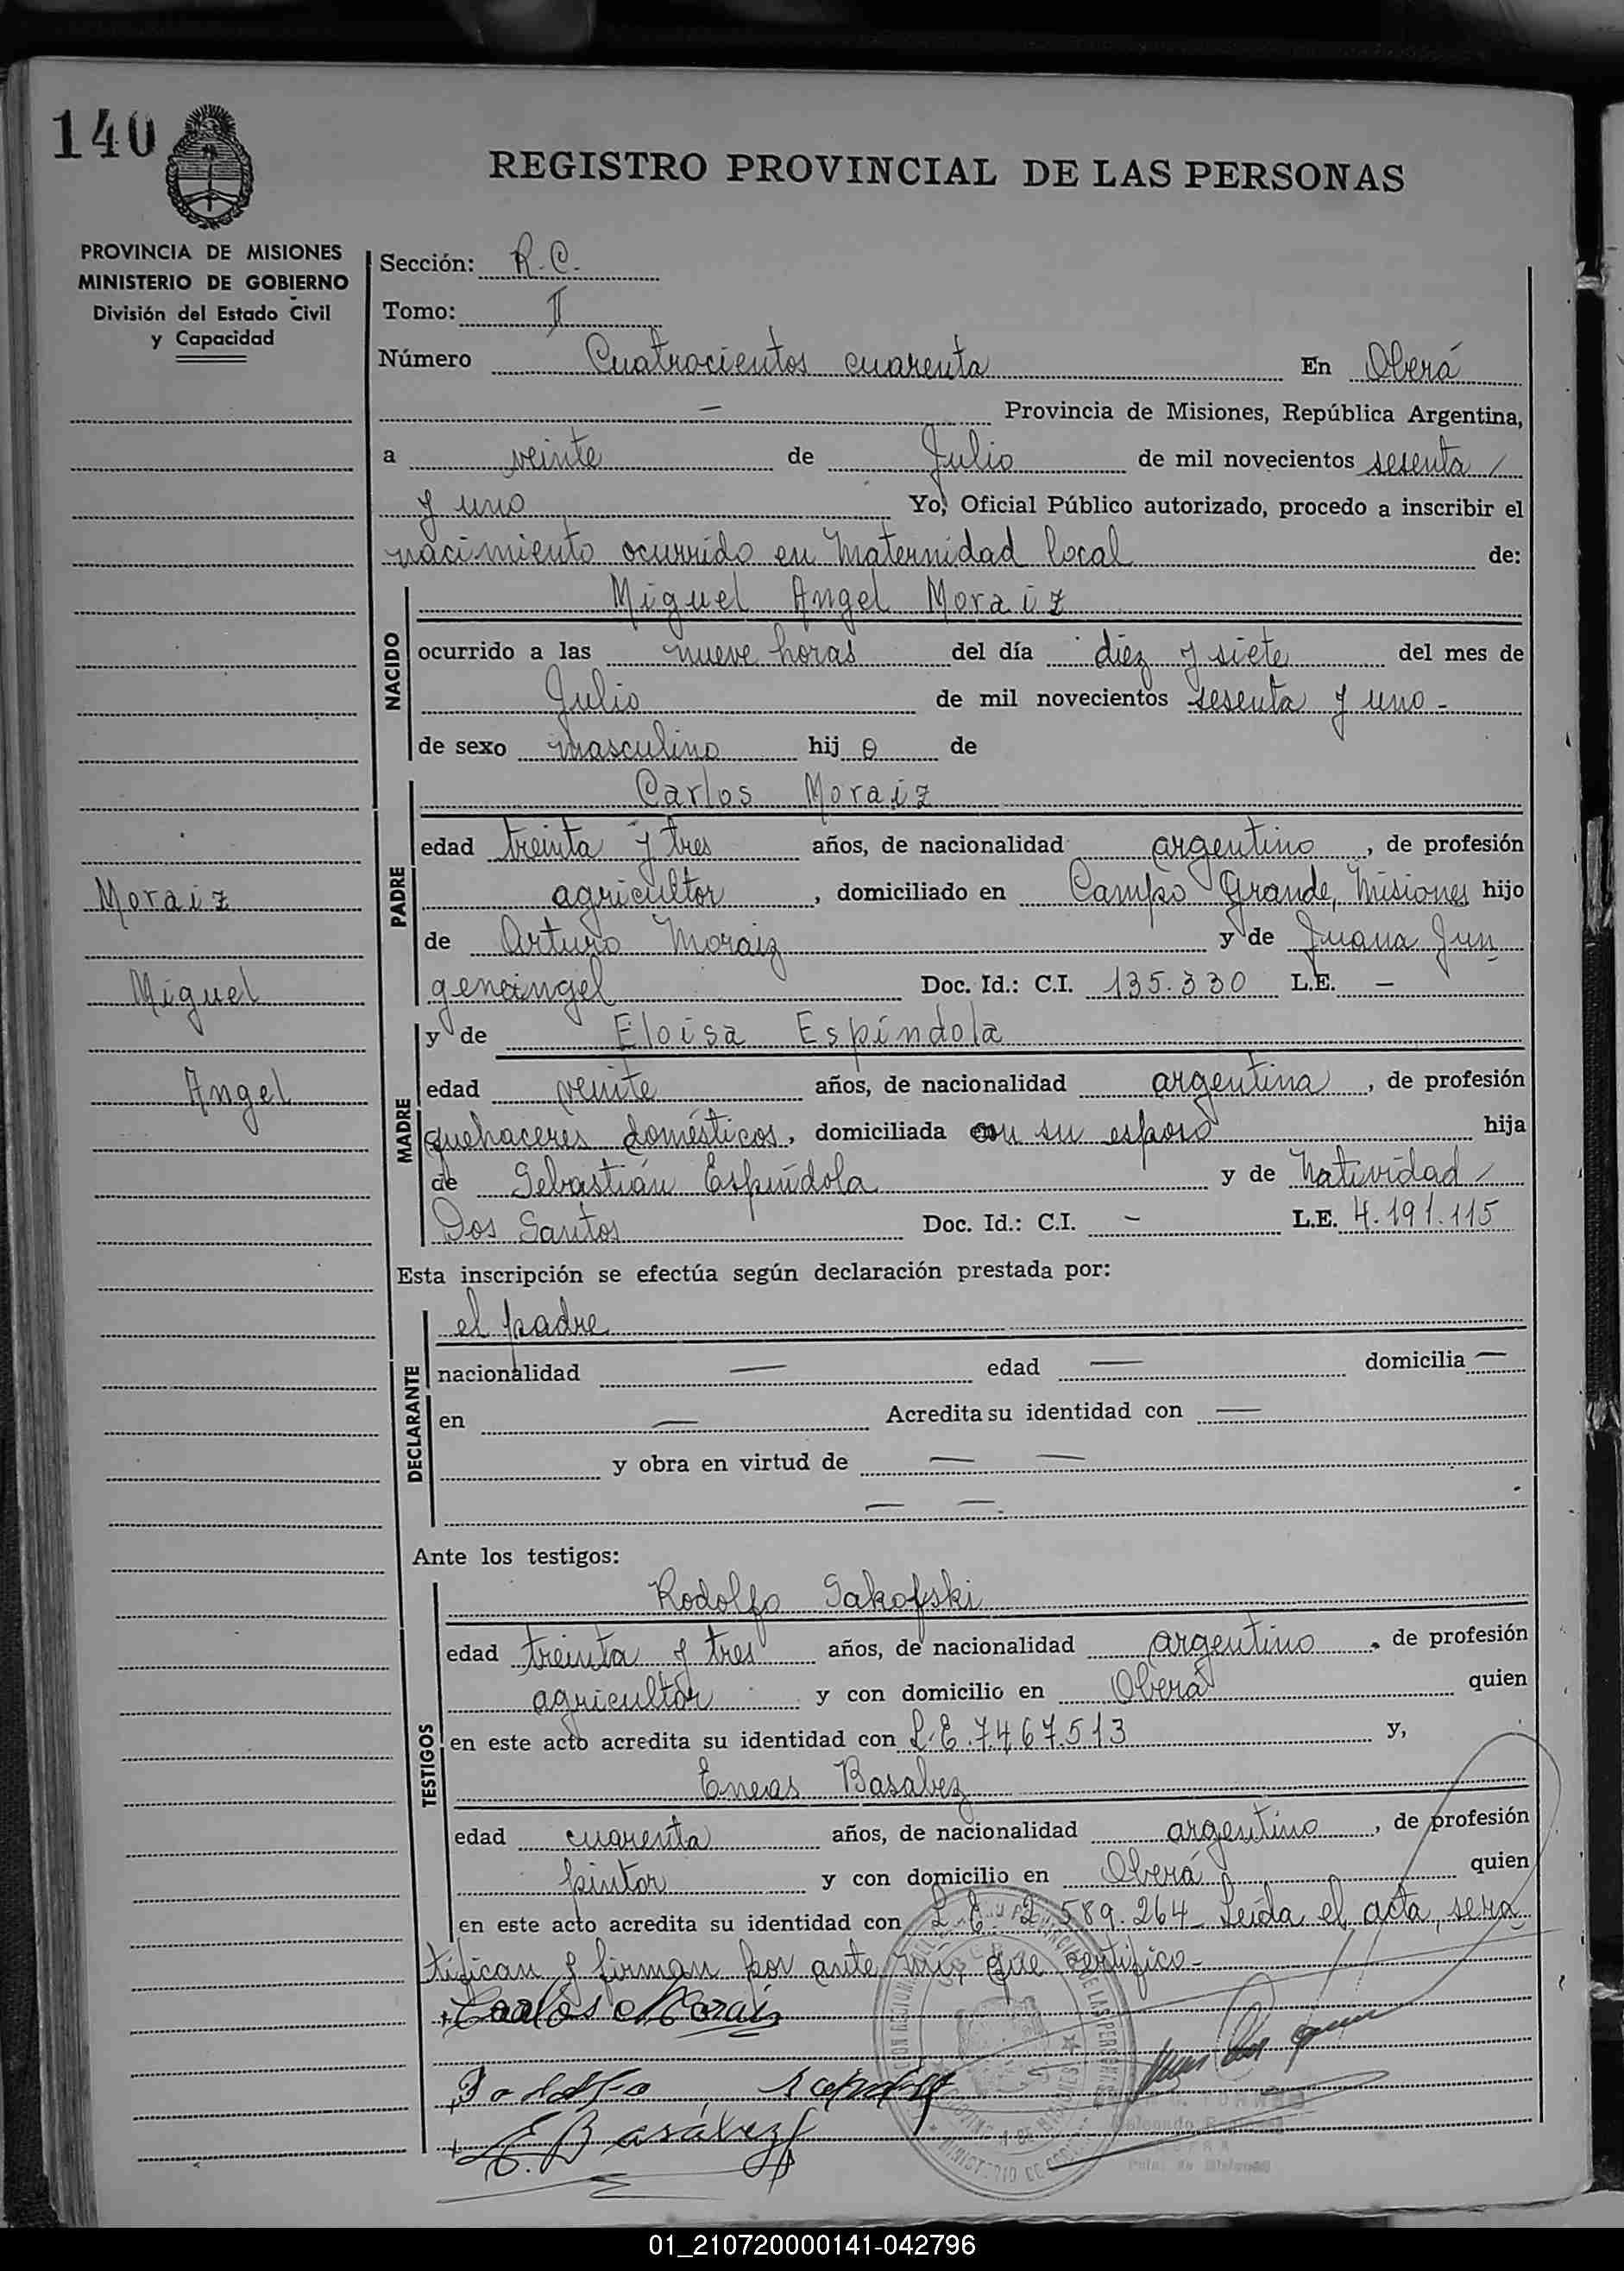 140
REGISTRO PROVINCIAL DE LAS PERSONAS
PROVINCIA DE MISIONES
MINISTERIO DE GOBIERNO
División del Estado Civil
y Capacidad
Sección: R.C.
Tomo: II
Número Cuatrocientos cuarenta En Oberá
— Provincia de Misiones, República Argentina,
a veinte de Julio de mil novecientos sesenta /
y uno Yo, Oficial Público autorizado, procedo a inscribir el
nacimiento ocurrido en Maternidad local de:
NACIDO
Miguel Angel Moraiz
ocurrido a las nueve horas del día diez y siete del mes de
Julio de mil novecientos sesenta y uno -
de sexo masculino hij o de
PADRE
Carlos Moraiz
edad treinta y tres años, de nacionalidad argentino, de profesión
agricultor, domiciliado en Campo Grande, Misiones hijo
de Arturo Moraiz y de Juana Jun
geneingel Doc. Id.: C.I. 135.330 L.E. —
Moraiz
Miguel
Angel
MADRE
y de Eloisa Espindola
edad veinte años, de nacionalidad argentina, de profesión
quehaceres domésticos, domiciliada con su esposo hija
de Sebastián Espíndola y de Natividad /
Dos Santos Doc. Id.: C.I. — L.E. 4.191.115
Esta inscripción se efectúa según declaración prestada por:
DECLARANTE
el padre
nacionalidad — edad — domicilia —
en — Acredita su identidad con —
y obra en virtud de — —
— —.
Ante los testigos:
TESTIGOS
Rodolfo Sakofski
edad treinta y tres años, de nacionalidad argentino, de profesión
agricultor y con domicilio en Oberá quien
en este acto acredita su identidad con L.E. 7.467.513 y,
Eneas Basabez
edad cuarenta años, de nacionalidad argentino, de profesión
pintor y con domicilio en Oberá quien
en este acto acredita su identidad con L.E. 2.589.264 Leída el acta, se ra
tifican y firman por ante mí, que certifico-
Carlos Moraiz
Rodolfo
E. Basálvez
01_210720000141-042796